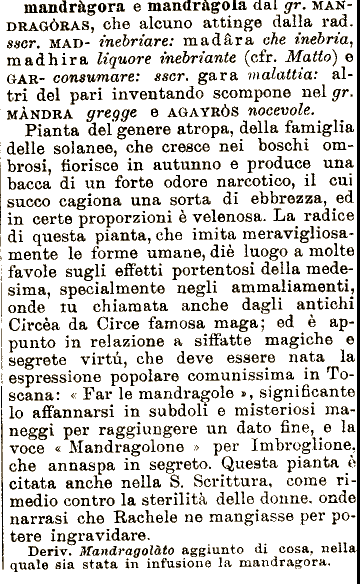 mandràgora e mandràgola dal gr. MAN-
DRAGÒRAS, che alcuno attinge dalla rad.
sscr. MAD- inebriare: madâra che inebria,
madhira liquore inebriante (cfr. Matto) e
GAR- consumare: sscr. gara malattia: al-
tri del pari inventando scompone nel gr.
MÀNDRA gregge e AGAYRÒS nocevole.
Pianta del genere atropa, della famiglia
delle solanee, che cresce nei boschi om-
brosi, fiorisce in autunno e produce una
bacca di un forte odore narcotico, il cui
succo cagiona una sorta di ebbrezza, ed
in certe proporzioni è velenosa. La radice
di questa pianta, che imita meravigliosa-
mente le forme umane, diè luogo a molte
favole sugli effetti portentosi della mede-
sima, specialmente negli ammaliamenti,
onde fu chiamata anche dagli antichi
Circèa da Circe famosa maga; ed è ap-
punto in relazione a siffatte magiche e
segrete virtú, che deve essere nata la
espressione popolare comunissima in To-
scana: « Far le mandragole », significante
lo affannarsi in subdoli e misteriosi ma-
neggi per raggiungere un dato fine, e la
voce « Mandragolone » per Imbroglione,
che annaspa in segreto. Questa pianta è
citata anche nella S. Scrittura, come ri-
medio contro la sterilità delle donne, onde
narrasi che Rachele ne mangiasse per po-
tere ingravidare.
Deriv. Mandragolàto aggiunto di cosa, nella
quale sia stata in infusione la mandragora.